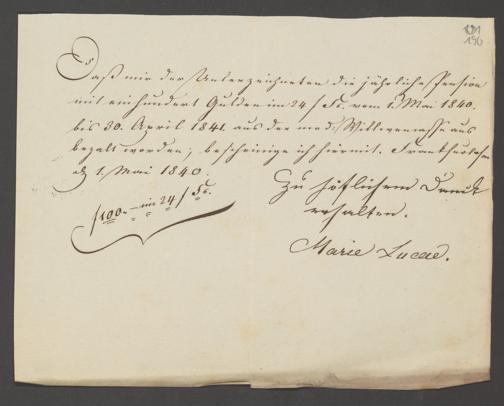 191
190
Daß mir der Unterzeichneten die jährliche Pension
mit einhundert Gulden im 24 f Fß. vom 1. Mai 1840.
bis 30. April 1841. aus der med. Wittwenkasse aus-
bezalt worden; bescheinige ich hiermit. Frankfurt a/m
d. 1. Mai 1840.
f 100.- im 24 f Fß.
Zu höflichem Dank
erhalten.
Marie Lucae.